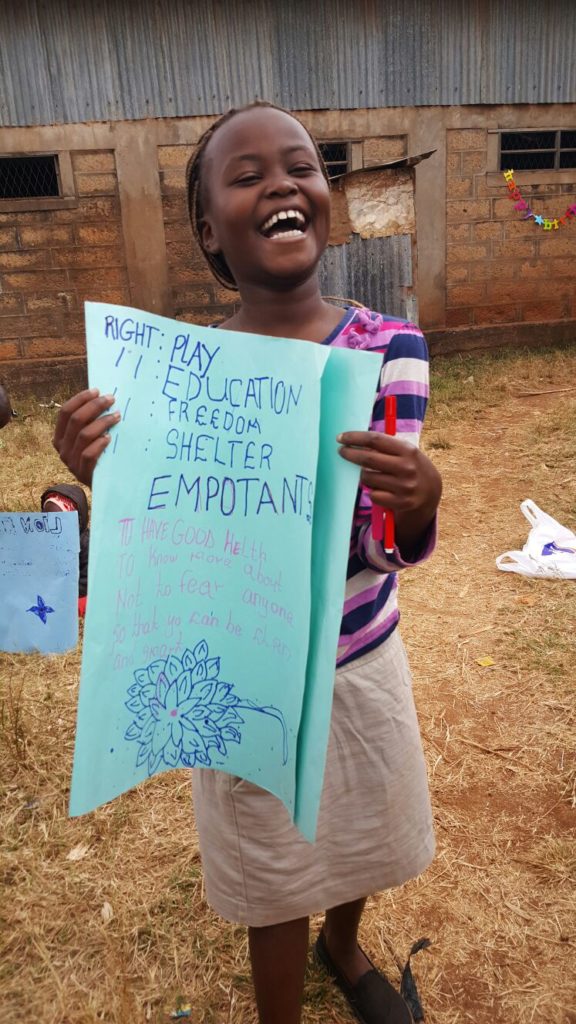 RIGHT : PLAY
11 : EDUCATION
11 : FREEDOM
11 : SHELTER
EMPOTANTS
TO HAVE GOOD HEALTH
TO know more about
Not to fear anyone
so that yo can be
and